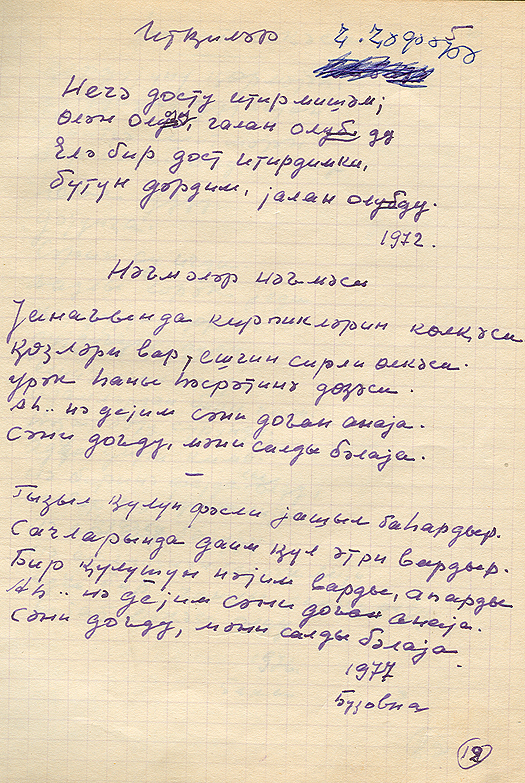 Итҝиләр
Нечә досту итирмишәм;
Өлән олуб, галан олуб ду
Елә бир дост итирдимки,
бүтүн дәрдим, јалан олубду.
1972.
Нәғмәләр нәғмәси
Јанағында кирпикләрин көлҝәси
ҝөзләри вар, ешгин сирли өлкәси.
үрәк һаны һәсрәтинә дөзәси.
Аһ.. нә дејим сәни доған анаја.
Сәни доғду, мәни салды бәлаја.
Гызыл ҝүлүн фәсли јашыл баһардыр.
Сачларында даим ҝүл әтри вардыр.
Бир ҝүлүшүн нәјим варды, апарды
Аһ.. нә дејим сәни доған анаја.
Сәни доғду, мәни салды бәлаја.
1977
Бузовна
12